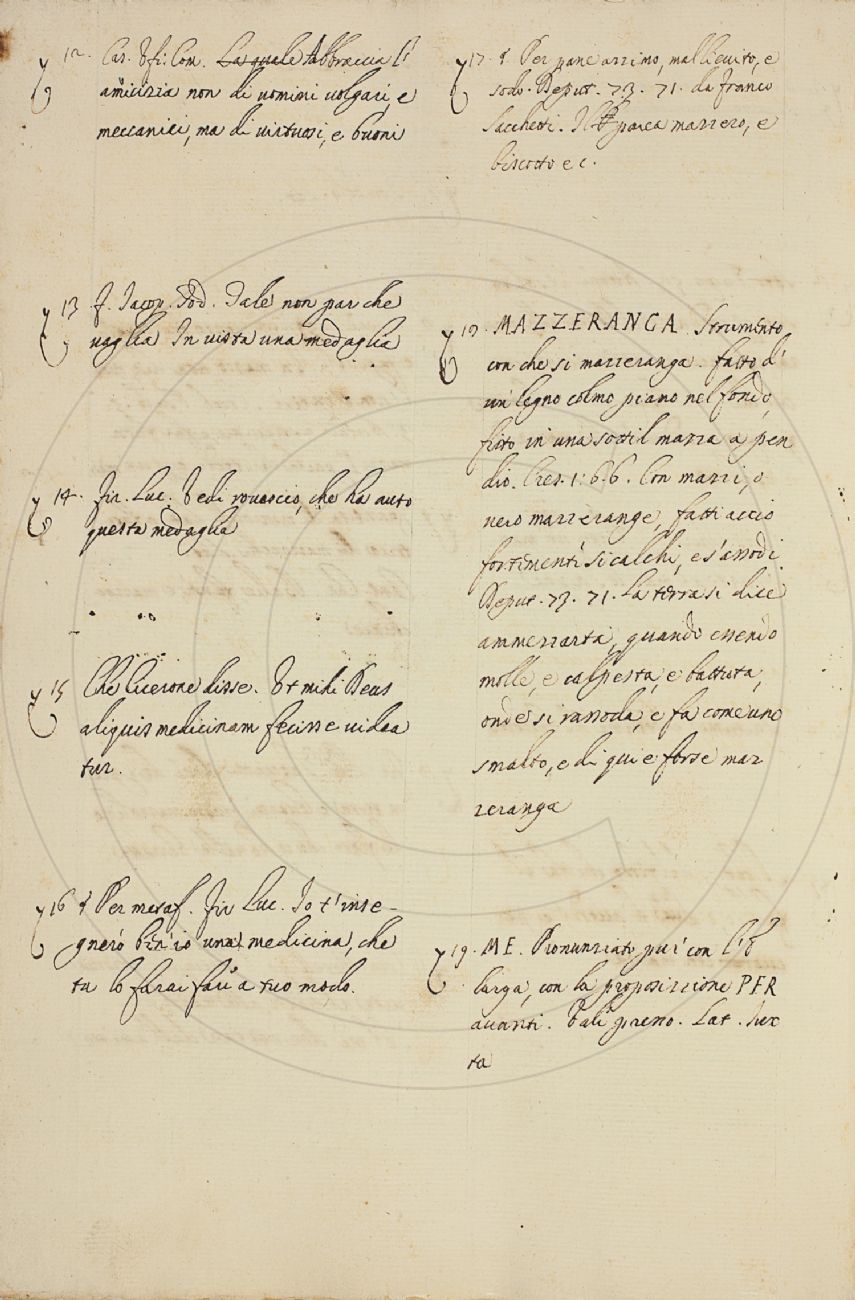 12. Cas. Ufi: Com. La quale Abbraccia l'
amicizia non di uomini volgari, e
meccanici, ma di virtuosi, e buoni
13 F. Jacop. Tod. Tale non par che
vaglia In vista una medaglia
14. Fir. Luc. Vedi rovescio, che ha auto
questa medaglia
15 Che Cicerone disse. Ut mihi Deus
aliquis medicinam fecisse videa
tur.
16 Per metaf. Fir Luc. Io t'inse-
gnerò una medicina, che
tu lo farai fare a tuo modo.
17. Per pane azzimo, mal lievito, e
sodo. Deput. 73. 71. da Franco
Sacchetti. parea mazzero, e
biscotto e c.
18. MAZZERANGA. Strumento
con che si mazzeranga. fatto d'
un legno colmo piano nel fondo,
fitto in una sottil mazza a pen
dio. Cres. 1: 6. 6. Con mazzi, o
vero mazzerange, fatti a ciò
fortimenti si calchi, e s'assodi
Deput. 73. 71. La terra si dice
ammezzarta, quando essendo
molle, e calpesta, e battuta,
onde si rassoda, e fa come uno
smalto, e di qui e forse maz
zeranga
19. ME. Pronunziato pur con l'E
larga, con la proposizione PER
avanti. Vale presso. Lat. Iux
ta